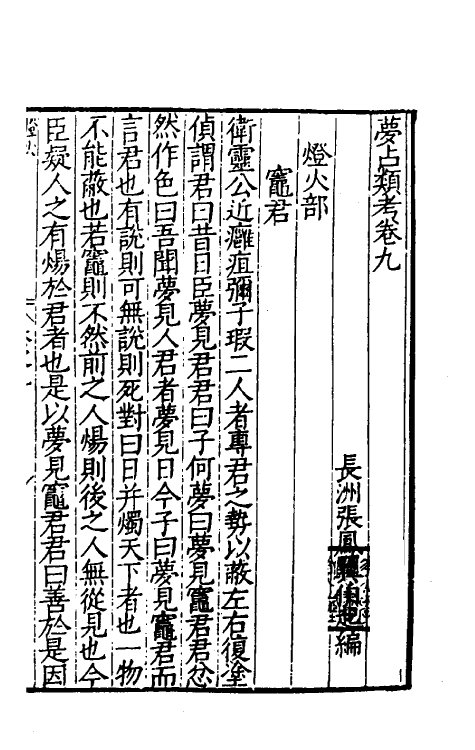 夢占類考卷九
長洲張鳳翼伯起編
燈火部
竈君
衛靈公近癰疽彌子瑕二人者專君之勢以蔽左右復塗
偵謂君曰昔日臣夢見君君曰子何夢曰夢見竈君君忿
然作色曰吾聞夢見人君者夢見日今子曰夢見竈君而
言君也有說則可無說則死對曰日并燭天下者也一物
不能蔽也若竈則不然前之人煬則後之人無從見也今
臣疑人之有煬於君者也是以夢見竈君君曰善於是因